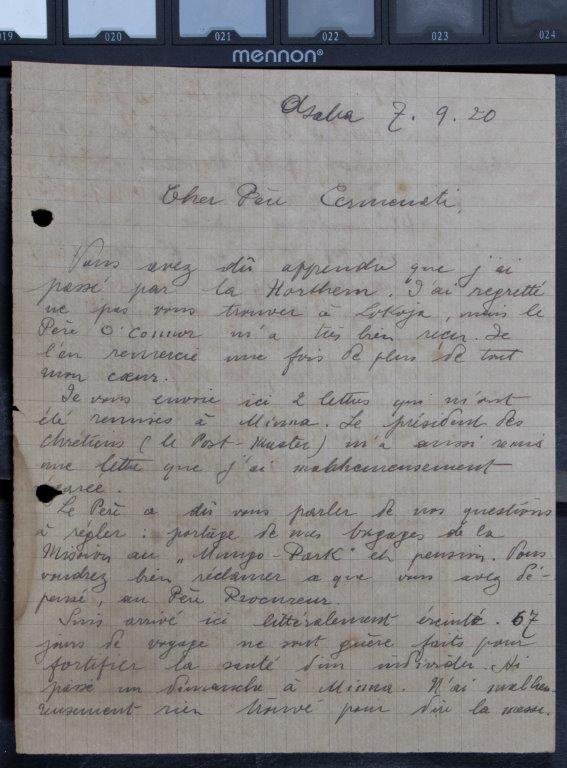 019 020 021 022 023 024
mennon®
Asaba 7. 9. 20
Cher Père Cermenati,
Vous avez dû apprendre que j'ai
passé par la Northern. J'ai regretté
ne pas vous trouver à Lokoja, mais le
Père O'Connor m'a très bien reçu. Je
l'en remercie une fois de plus de tout
mon cœur.
Je vous envoie ici 2 lettres qui m'ont
été remises à Minna. Le président des
chrétiens (le Post-Master) m'a aussi remis
une lettre que j'ai malheureusement
égarée.
Le Père a dû vous parler de nos questions
à régler : portage de mes bagages de la
Mission au „Mungo-Park" et pension. Vous
voudrez bien réclamer ce que vous avez dé-
pensé, au Père Procureur.
Suis arrivé ici littéralement éreinté. 67
jours de voyage ne sont guère faits pour
fortifier la santé d'un individu. Ai
passé un dimanche à Minna. N'ai malheu-
reusement rien trouvé pour dire la messe.